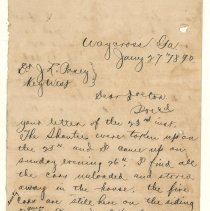 Waycross Ga
Jany 27th 1890
Key West
Dear Doctor
your letter of the 23rd inst.
The Shanties were torn up on
the 25th and I came up on
sunday evening 26th. I find all
the cars unloaded and stored
away in the house, the five
cars are still here on the siding